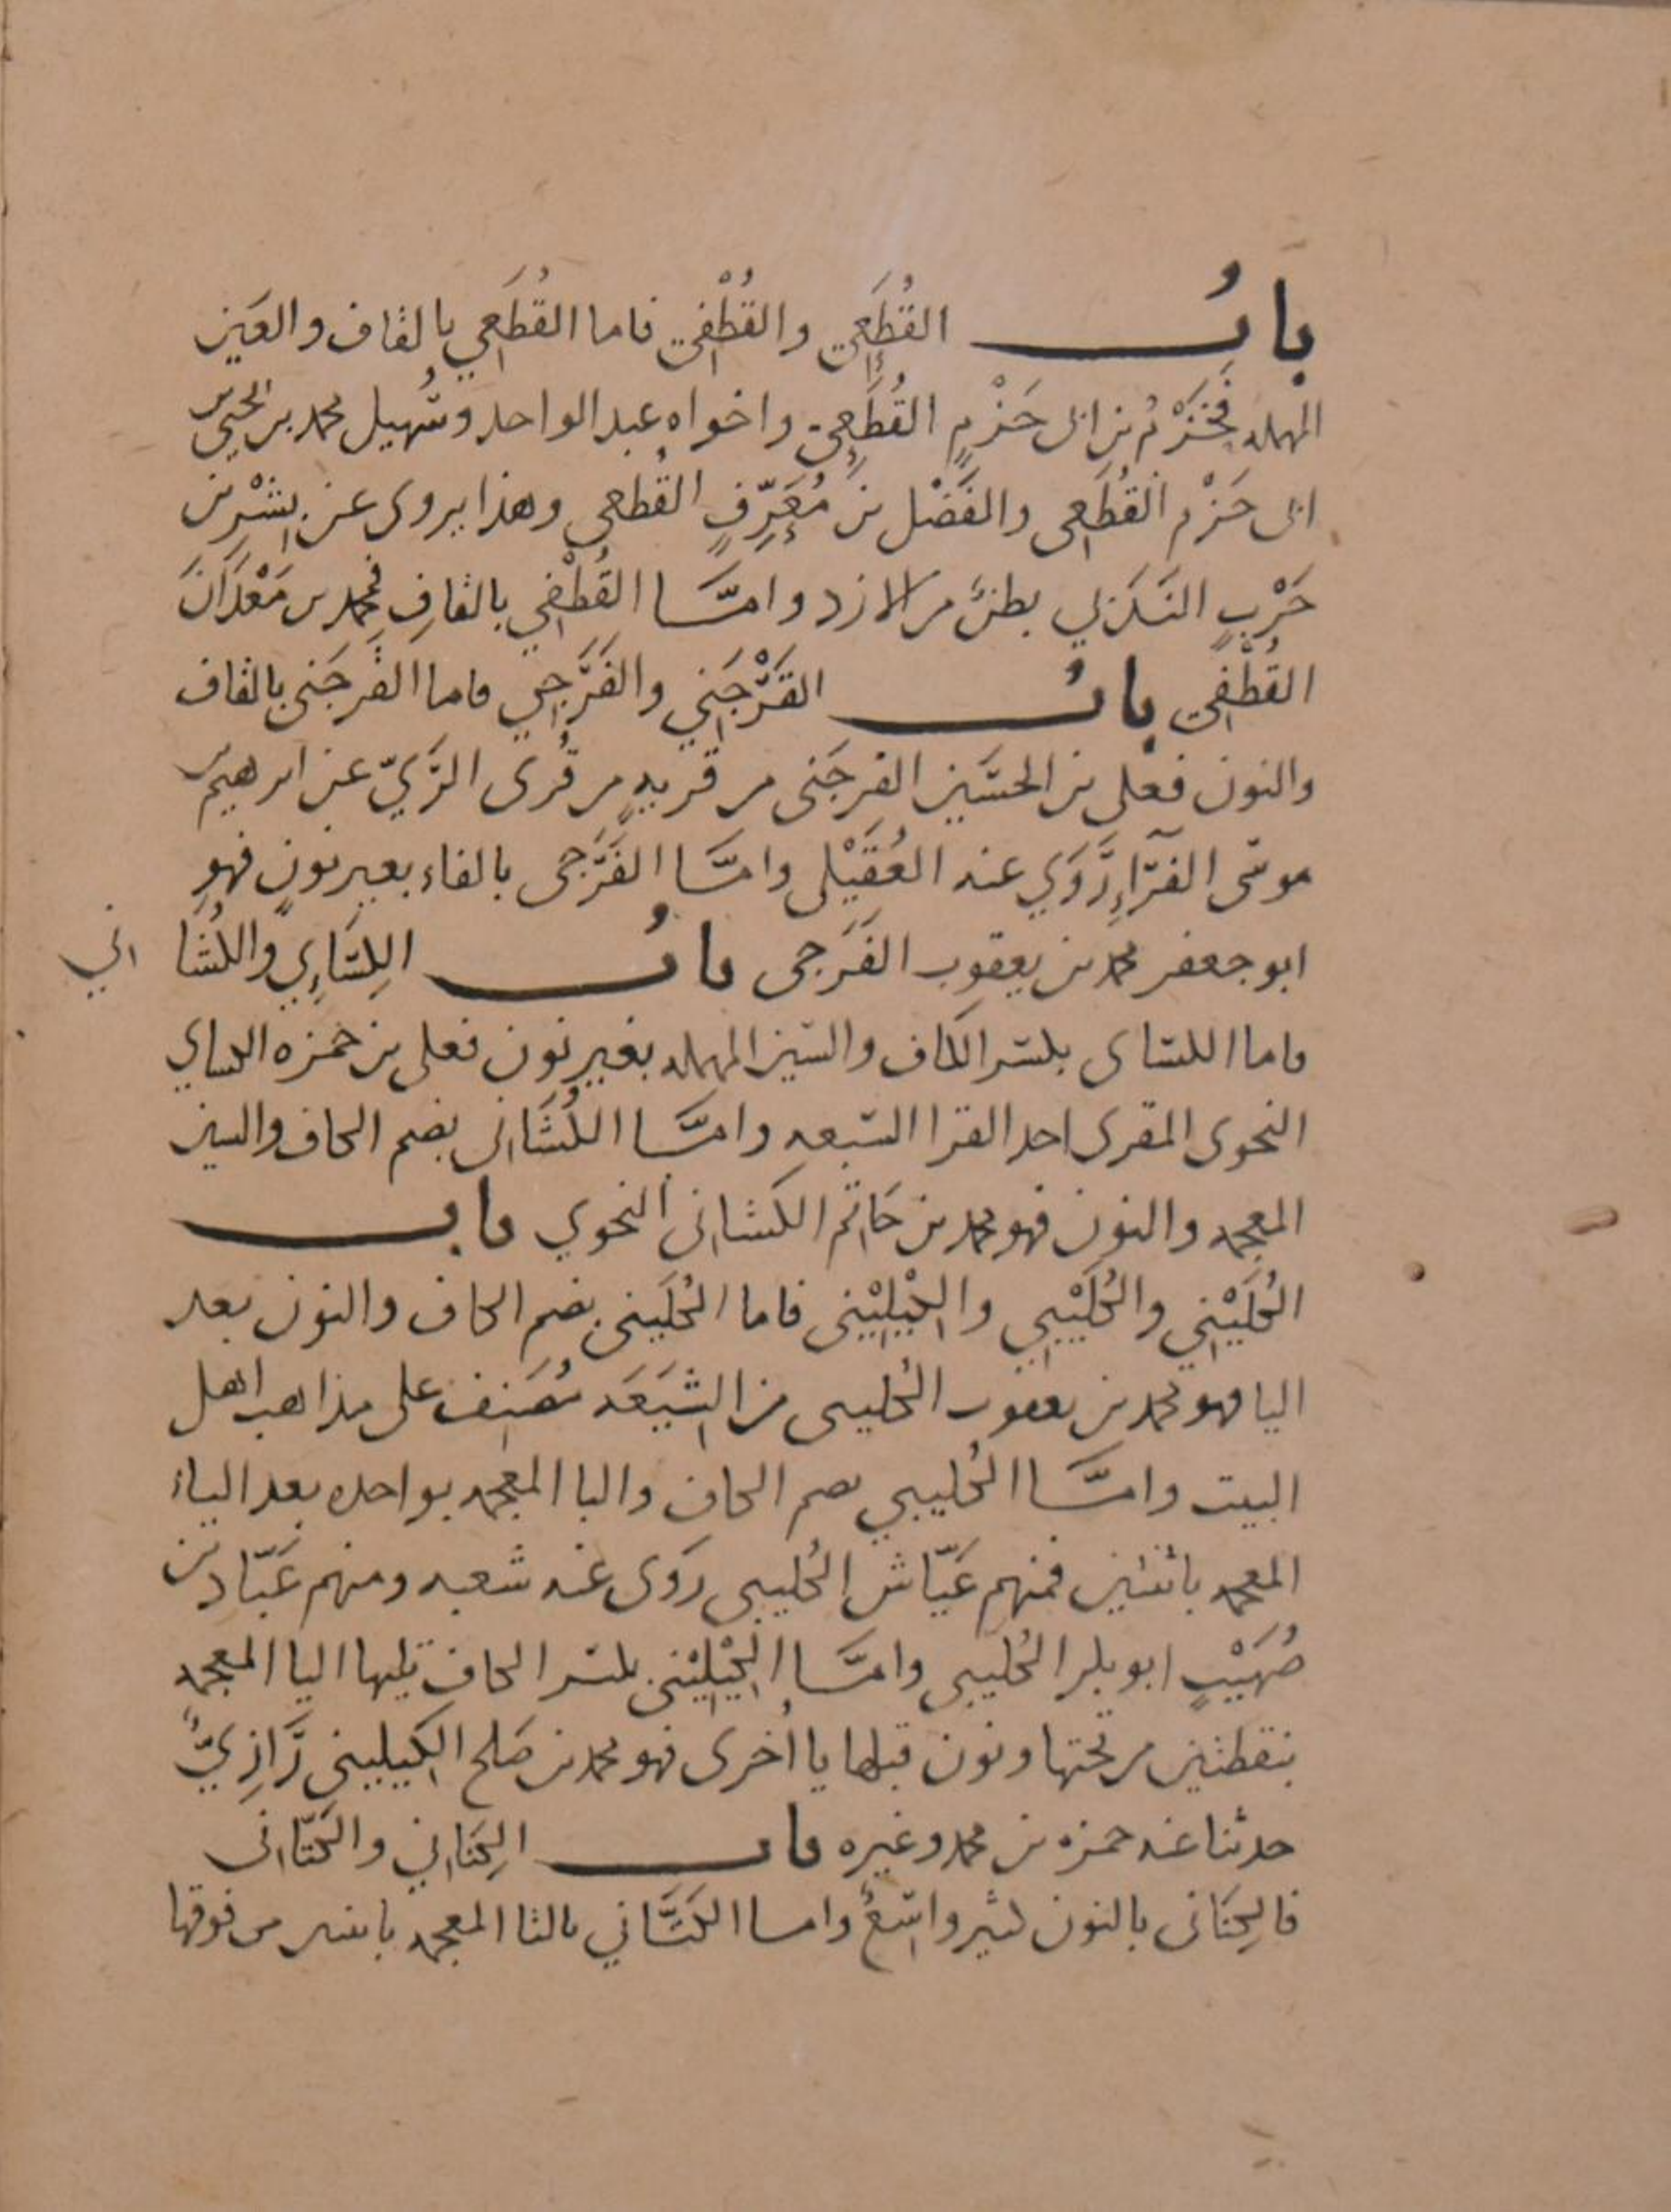 بابُ القُطَعِي والقُطْفِي فاما القُطَعِي بالقاف والعَين
المهمله فحَزْم بن ابى حَزْمٍ القُطَعِي واخواه عبد الواحد وسُهيل محمد بن يحيى بن
ابى حَزْم القُطَعِى والفَضْل بن مُعَرِّفٍ القُطعى وهذا يروى عن بِشْر بن
حَرْبٍ النَدَبي بطن من الازد وامَّا القُطْفِي بالقافِ فمحمد بن مَعْدَانَ
القُطْفِي بابُ القَرْجَنِي والفَرَجِي فاما القَرجَنى بالقاف
والنون فعلى بن الحسَين القرجَنى من قريهٍ من قُرى الرَّيّ عن ابرهيم بن
موسى الفرّاءِ رَوَي عنه العُقَيْلى وامَّا الفَرَجى بالفاء بغير نونٍ فهو
ابو جعفر محمد بن يعقوب الفَرَجى بابُ الكِسَاءِي والكُشَا اني
فاما الكساى بكسر الكاف والسّين المهمله بغير نون فعلى بن حمزه الكساي
النحوى المقرى احد القرا السّبعه وامَّا الكُشَانى بضم الكاف والشين
المعجمه والنون فهو محمد بن حَاتم الكشانى النحوي باب
الكُلَيْنِي والكُلَيْبِي والكِيلِيْنى فاما الكُلَينى بضم الكاف والنون بعد
اليا فهو محمد بن يعقوب الكُلينى من الشيعَه مُصَنِف على مذاهب اهل
البيت وامَّا الكُليبي بضم الكاف والبا المعجمه بواحده بعد الياء
المعجمه باثنتين فمنهم عَيّاش الكُليبى روَى عنه شعبه ومنهم عَبّاد بن
صُهَيْبٍ ابو بكر الكُليبى وامَّا الكِيْلِيْنى بكسر الكاف تليها اليا المعجمه
بنقطتين من تحتها ونون قبلها يا اُخرى فهو محمد بن صَلح الكِيلينى رَازِيٌّ
حدثنا عنه حمزه بن محمد وغيره باب الكِنَانِي والكَتّانى
فالكِنَانى بالنون كثير واسِعٌ واما الكَتَّاني بالتا المعجمه باثنتين من فوقها